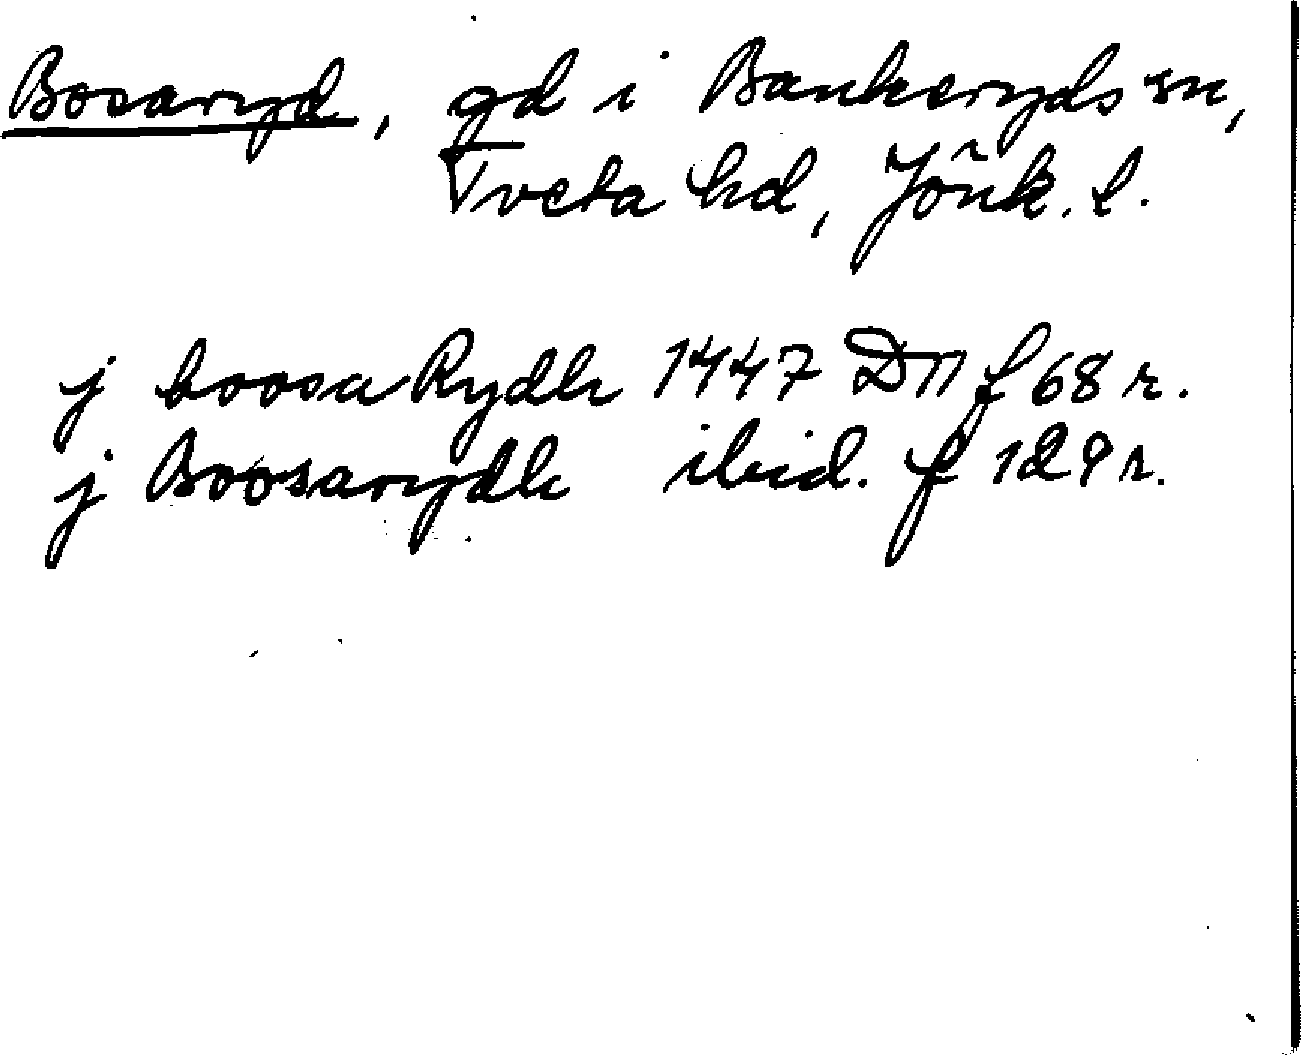 Bosaryd, gd i Bankeryds sn,
Tveta hd, Jönk. l.
j boosa Rydh 1447 Dn f 68 r.
j Boosarydh ibid. f 129 r.